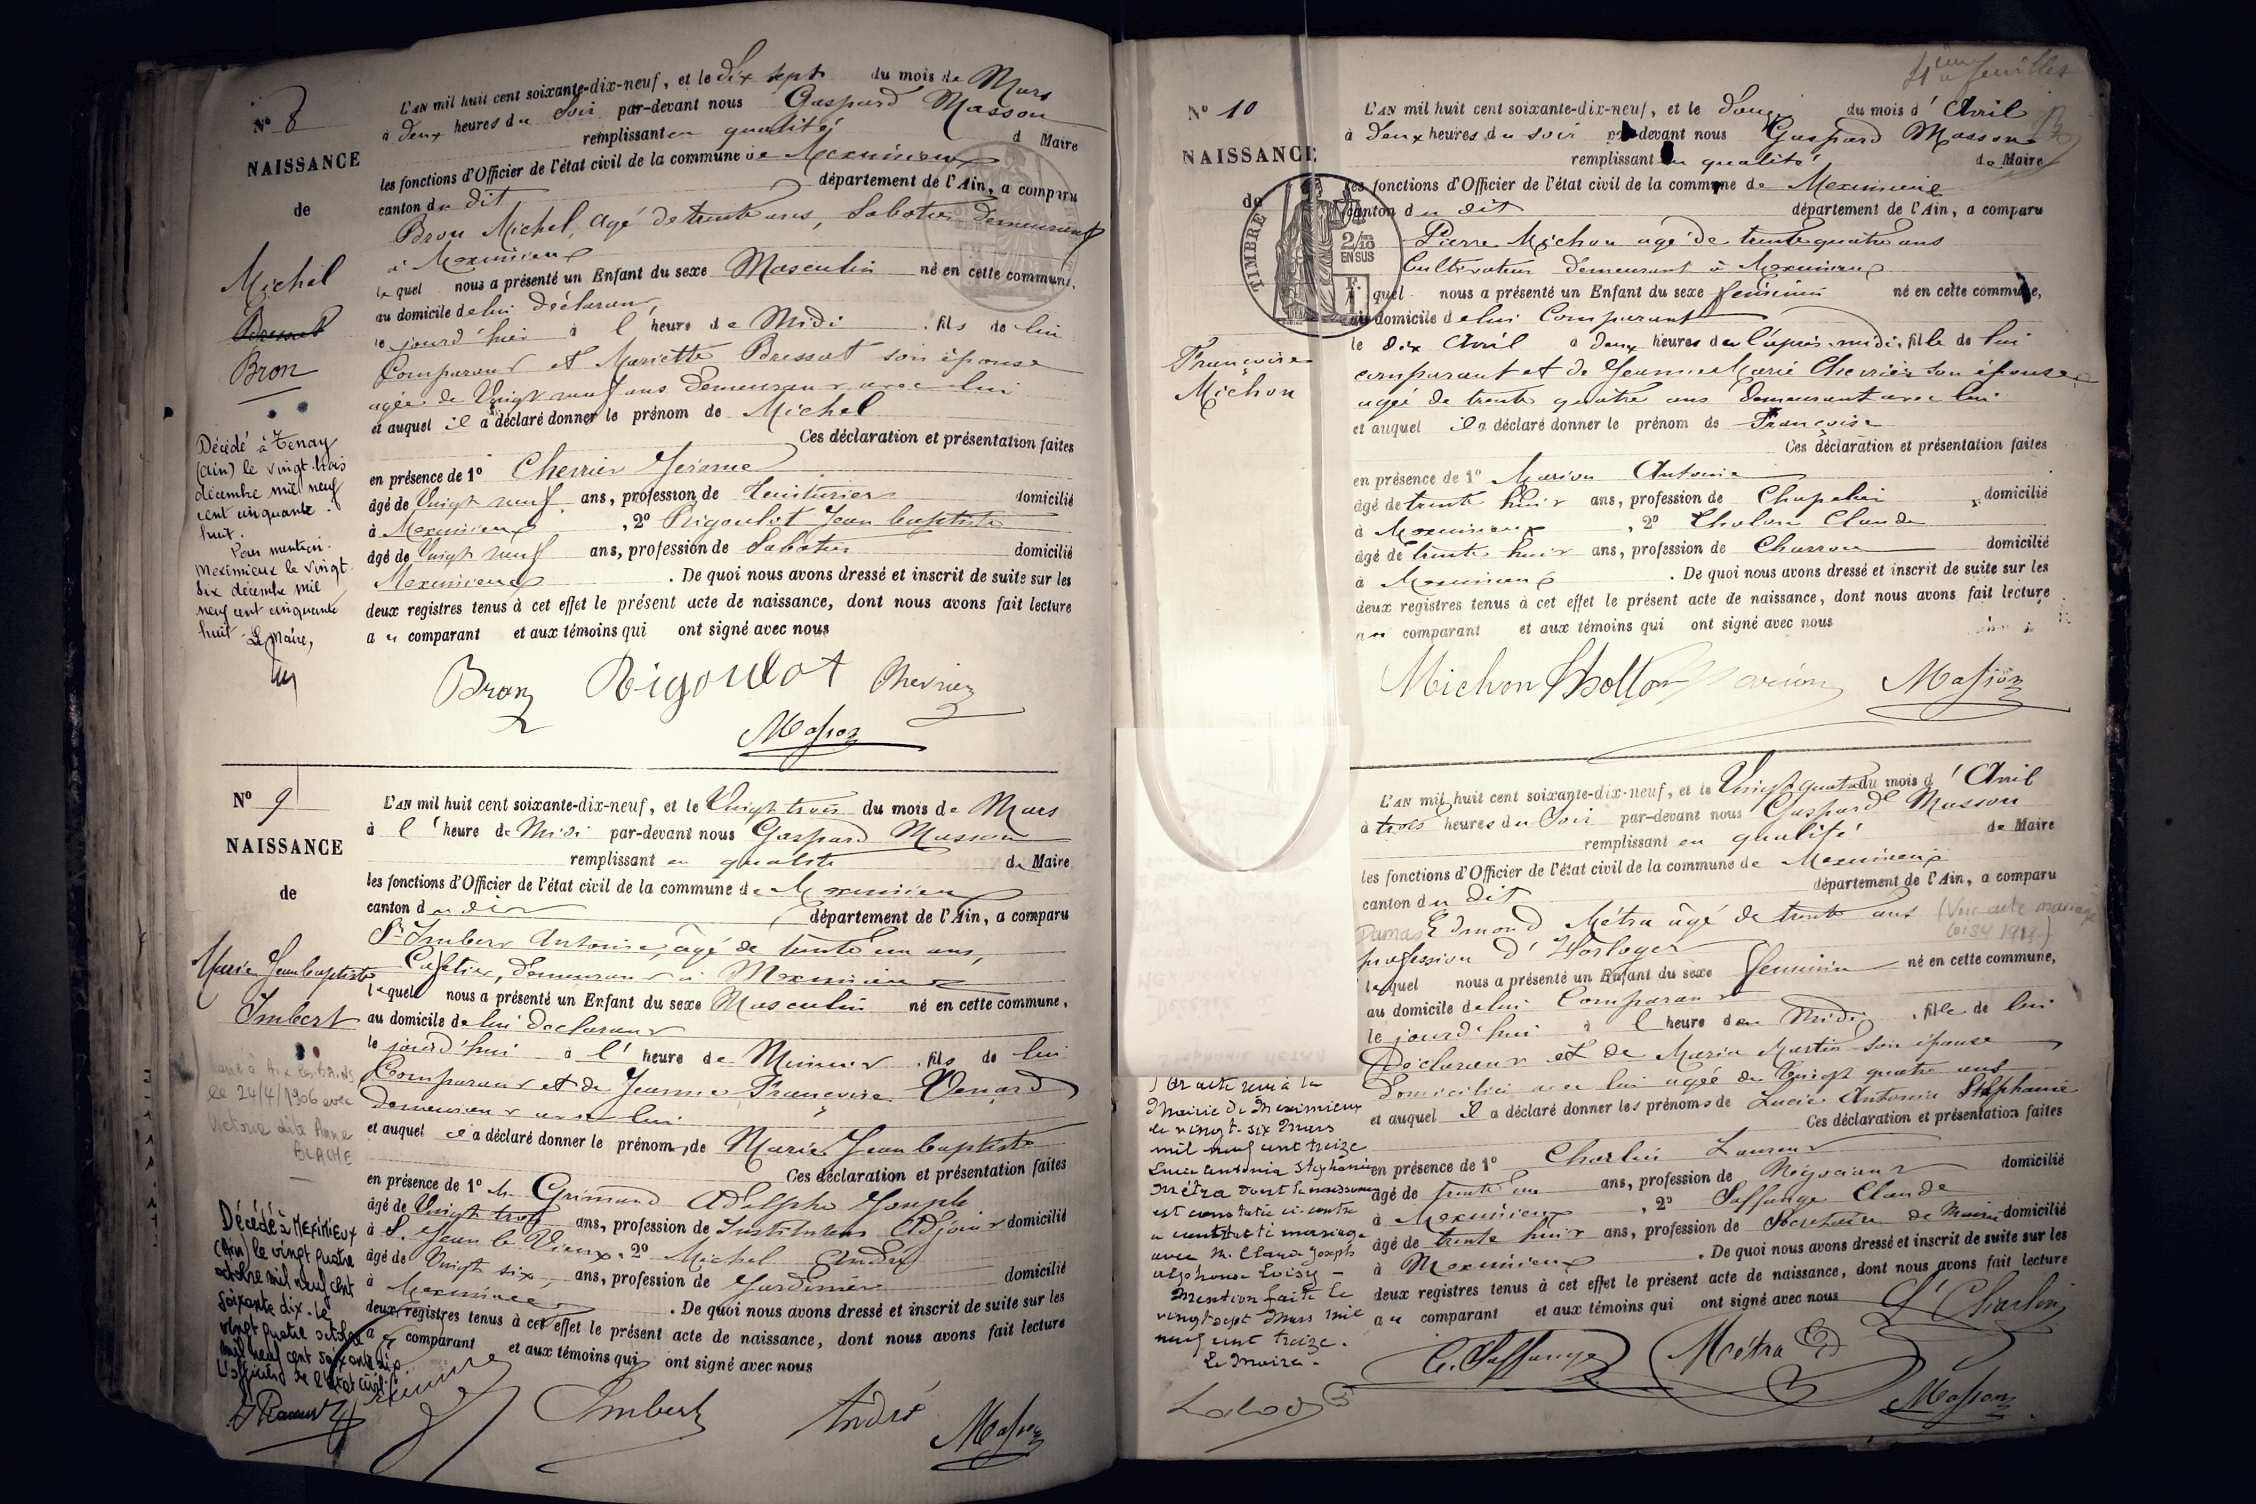 N° 8
NAISSANCE
de
Michel
Bron
Décédé à Tenay
(Ain) le vingt-trois
décembre mil neuf
cent cinquante
huit.
Pour mention.
Meximieux le vingt
six décembre mil
neuf cent cinquante
huit. Le Maire,
L'AN mil huit cent soixante-dix-neuf, et le Dix sept du mois de Mars
à deux heures du Soir par-devant nous Gaspard Masson
remplissant en qualité d Maire
les fonctions d'Officier de l'état civil de la commune de Meximieux
canton du dit département de l'Ain, a comparu
Bron Michel, agé de trente ans, Sabotier demeurant
à Meximieux
lequel nous a présenté un Enfant du sexe Masculin né en cette commune,
au domicile de lui déclarant
le jourd'hui à l'heure de Midi, fils de lui
Comparant et Mariette Bressat son épouse
agée de Vingt neuf ans demeurant avec lui
et auquel il a déclaré donner le prénom de Michel
Ces déclaration et présentation faites
en présence de 1° Cherrier Jérome
âgé de Vingt neuf ans, profession de teinturier domicilié
à Meximieux, 2° Rigoulot Jean baptiste
âgé de Vingt neuf ans, profession de Sabotier domicilié
Meximieux. De quoi nous avons dressé et inscrit de suite sur les
deux registres tenus à cet effet le présent acte de naissance, dont nous avons fait lecture
au comparant et aux témoins qui ont signé avec nous
Bron Rigoulot Chevrier
Masson
N° 9
NAISSANCE
de
Marie Jean baptiste
Imbert
Marié à Aix les Bains
le 24/4/1906 avec
Victorine dite Anne
BLACHE
Décédé à MEXIMIEUX
(Ain) le vingt quatre
octobre mil neuf cent
soixante dix. Le
vingt quatre octobre
mil neuf cent soixante dix
L'officier de l'état civil
L'AN mil huit cent soixante-dix-neuf, et le Vingt trois du mois de Mars
à l'heure de Midi par-devant nous Gaspard Masson
remplissant en qualité de Maire
les fonctions d'Officier de l'état civil de la commune de Meximieux
canton du dit département de l'Ain, a comparu
St Imbert Antoine, âgé de trente un ans,
Cafetier, demeurant à Meximieux
lequel nous a présenté un Enfant du sexe Masculin né en cette commune,
au domicile de lui déclarant
le jourd'hui à l'heure de Minuit, fils de lui
Comparant et de Jeanne Françoise Venard
demeurant avec lui
et auquel il a déclaré donner le prénom, de Marie Jean baptiste
Ces déclaration et présentation faites
en présence de 1° Mr Grimand Adolphe Joseph
âgé de Vingt trois ans, profession de Instituteur Adjoint domicilié
à St Jean le Vieux, 2° Michel André
âgé de Vingt six ans, profession de Jardinier domicilié
à Meximieux. De quoi nous avons dressé et inscrit de suite sur les
deux registres tenus à cet effet le présent acte de naissance, dont nous avons fait lecture
au comparant et aux témoins qui ont signé avec nous
Imbert André Masson
feuilles
N° 10
NAISSANCE
de
TIMBRE
2/10
EN SUS
Françoise
Michon
L'AN mil huit cent soixante-dix-neuf, et le douze du mois d'Avril
à deux heures du soir par-devant nous Gaspard Masson
remplissant en qualité de Maire
les fonctions d'Officier de l'état civil de la commune de Meximieux
canton du dit département de l'Ain, a comparu
Pierre Michon agé de trente quatre ans
Cultivateur demeurant à Meximieux
lequel nous a présenté un Enfant du sexe féminin né en cette commune,
au domicile de lui Comparant
le dix Avril à deux heures de l'après-midi, fille de lui
comparant et de Jeanne Marie Cherrier son épouse
agée de trente quatre ans demeurant avec lui
et auquel il a déclaré donner le prénom de Françoise
Ces déclaration et présentation faites
en présence de 1° Marion Antoine
âgé de trente huit ans, profession de Chapelier domicilié
à Meximieux, 2° Cholon Claude
âgé de trente huit ans, profession de Charron domicilié
à Meximieux. De quoi nous avons dressé et inscrit de suite sur les
deux registres tenus à cet effet le présent acte de naissance, dont nous avons fait lecture
au comparant et aux témoins qui ont signé avec nous
Michon Marion Masson
Par acte reçu à la
Mairie de Meximieux
le vingt-six Mars
mil neuf cent treize
Lucie Antonia Stéphanie
Métra dont la naissance
est constatée ci-contre
a contracté mariage
avec Mr Claude Joseph
Alphonse Loisy -
Mention faite le
vingt sept Mars mil
neuf cent treize.
Le Maire.
L'AN mil huit cent soixante-dix-neuf, et le Vingt quatre du mois d'Avril
à trois heures du Soir par-devant nous Gaspard Masson
remplissant en qualité de Maire
les fonctions d'Officier de l'état civil de la commune de Meximieux
canton du dit département de l'Ain, a comparu
Damas Edmond Métra âgé de trente ans (Voir acte mariage
profession d'Horloger
lequel nous a présenté un Enfant du sexe féminin né en cette commune,
au domicile de lui Comparant
le jourd'hui à l'heure de Midi, fille de lui
Déclarant et de Maria Martin son épouse
domiciliée avec lui agée de Vingt quatre ans
et auquel il a déclaré donner les prénoms de Lucie Antonia Stéphanie
Ces déclaration et présentation faites
en présence de 1° Charlin Laurent
âgé de trente un ans, profession de Négociant domicilié
à Meximieux, 2° Saffange Claude
âgé de trente huit ans, profession de Secrétaire de Mairie domicilié
à Meximieux. De quoi nous avons dressé et inscrit de suite sur les
deux registres tenus à cet effet le présent acte de naissance, dont nous avons fait lecture
au comparant et aux témoins qui ont signé avec nous L. Charlin
C. Saffange Métra Masson